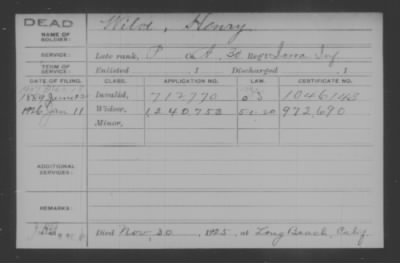 DEAD
NAME OF SOLDIER: Wilde, Henry
SERVICE: Late rank, P Co. A, 30 Reg't Iowa Inf
TERM OF SERVICE: Enlisted , 1 Discharged , 1
DATE OF FILING. CLASS. APPLICATION NO. LAW. CERTIFICATE NO.
1889 June Invalid, 712770 1046143
1926 Jan 11 Widow, 1240753 5-1-20 972,690
Minor,
ADDITIONAL SERVICES:
REMARKS:
Died Nov. 30, 1925, at Long Beach, Calif.